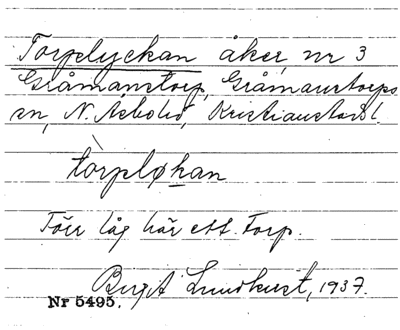 Torpelyckan åker, nr 3
Gråmanstorp, Gråmanstorps
sn, N. Åsbohd, Kristianstads l.
tòrpløkan
Förr låg här ett Torp.
Birgit Lundkvist, 1937.
Nr 5495.